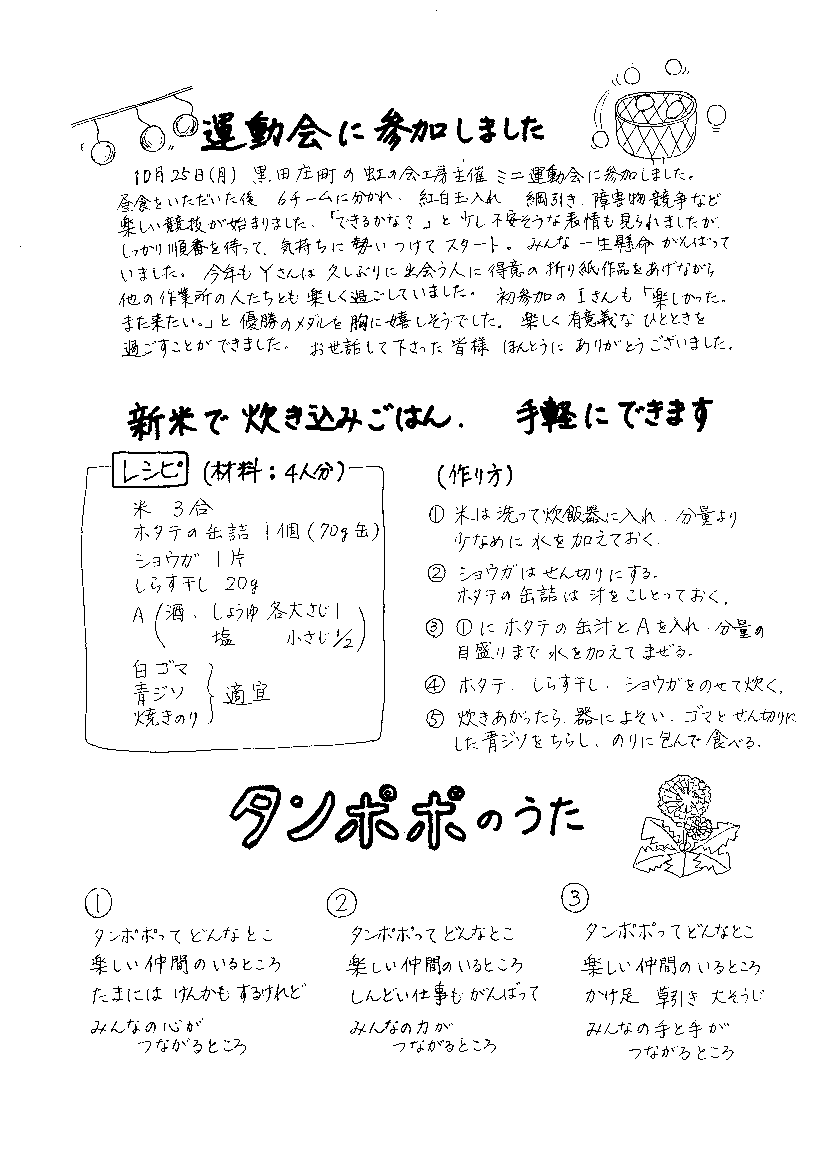 運動会に参加しました
10月25日(月) 黒田庄町の虹の会工房主催 ミニ運動会に参加しました。
昼食をいただいた後 6チームに分かれ、紅白玉入れ 綱引き、障害物競争など
楽しい競技が始まりました。「できるかな?」と少し不安そうな表情も見られましたが、
しっかり順番を待って、気持ちに勢いつけてスタート。みんな一生懸命がんばって
いました。 今年もYさんは久しぶりに出会う人に得意の折り紙作品をあげながら
他の作業所の人たちとも楽しく過ごしていました。 初参加のIさんも「楽しかった。
また来たい。」と優勝のメダルを胸に嬉しそうでした。楽しく有意義なひとときを
過ごすことができました。 お世話して下さった皆様 ほんとうにありがとうございました。
新米で炊き込みごはん、 手軽にできます
レシピ (材料;4人分)
米 3合
ホタテの缶詰 1個(70g缶)
ショウガ 1片
しらす干し 20g
A(酒、しょうゆ 各大さじ1
塩 小さじ1/2)
白ゴマ
青ジソ 適宜
焼きのり
(作り方)
① 米は洗って炊飯器に入れ、分量より
少なめに水を加えておく。
② ショウガはせん切りにする。
ホタテの缶詰は汁をこしとっておく。
③ ①にホタテの缶汁とAを入れ、分量の
目盛りまで水を加えてまぜる。
④ ホタテ、しらす干し、ショウガをのせて炊く。
⑤ 炊きあがったら、器によそい、ゴマとせん切りに
した青ジソをちらし、のりに包んで食べる。
タンポポのうた
①
タンポポってどんなとこ
楽しい仲間のいるところ
たまには けんかもするけれど
みんなの心が
つながるところ
②
タンポポってどんなとこ
楽しい仲間のいるところ
しんどい仕事もがんばって
みんなの力が
つながるところ
③
タンポポってどんなとこ
楽しい仲間のいるところ
かけ足 草引き 大そうじ
みんなの手と手が
つながるところ